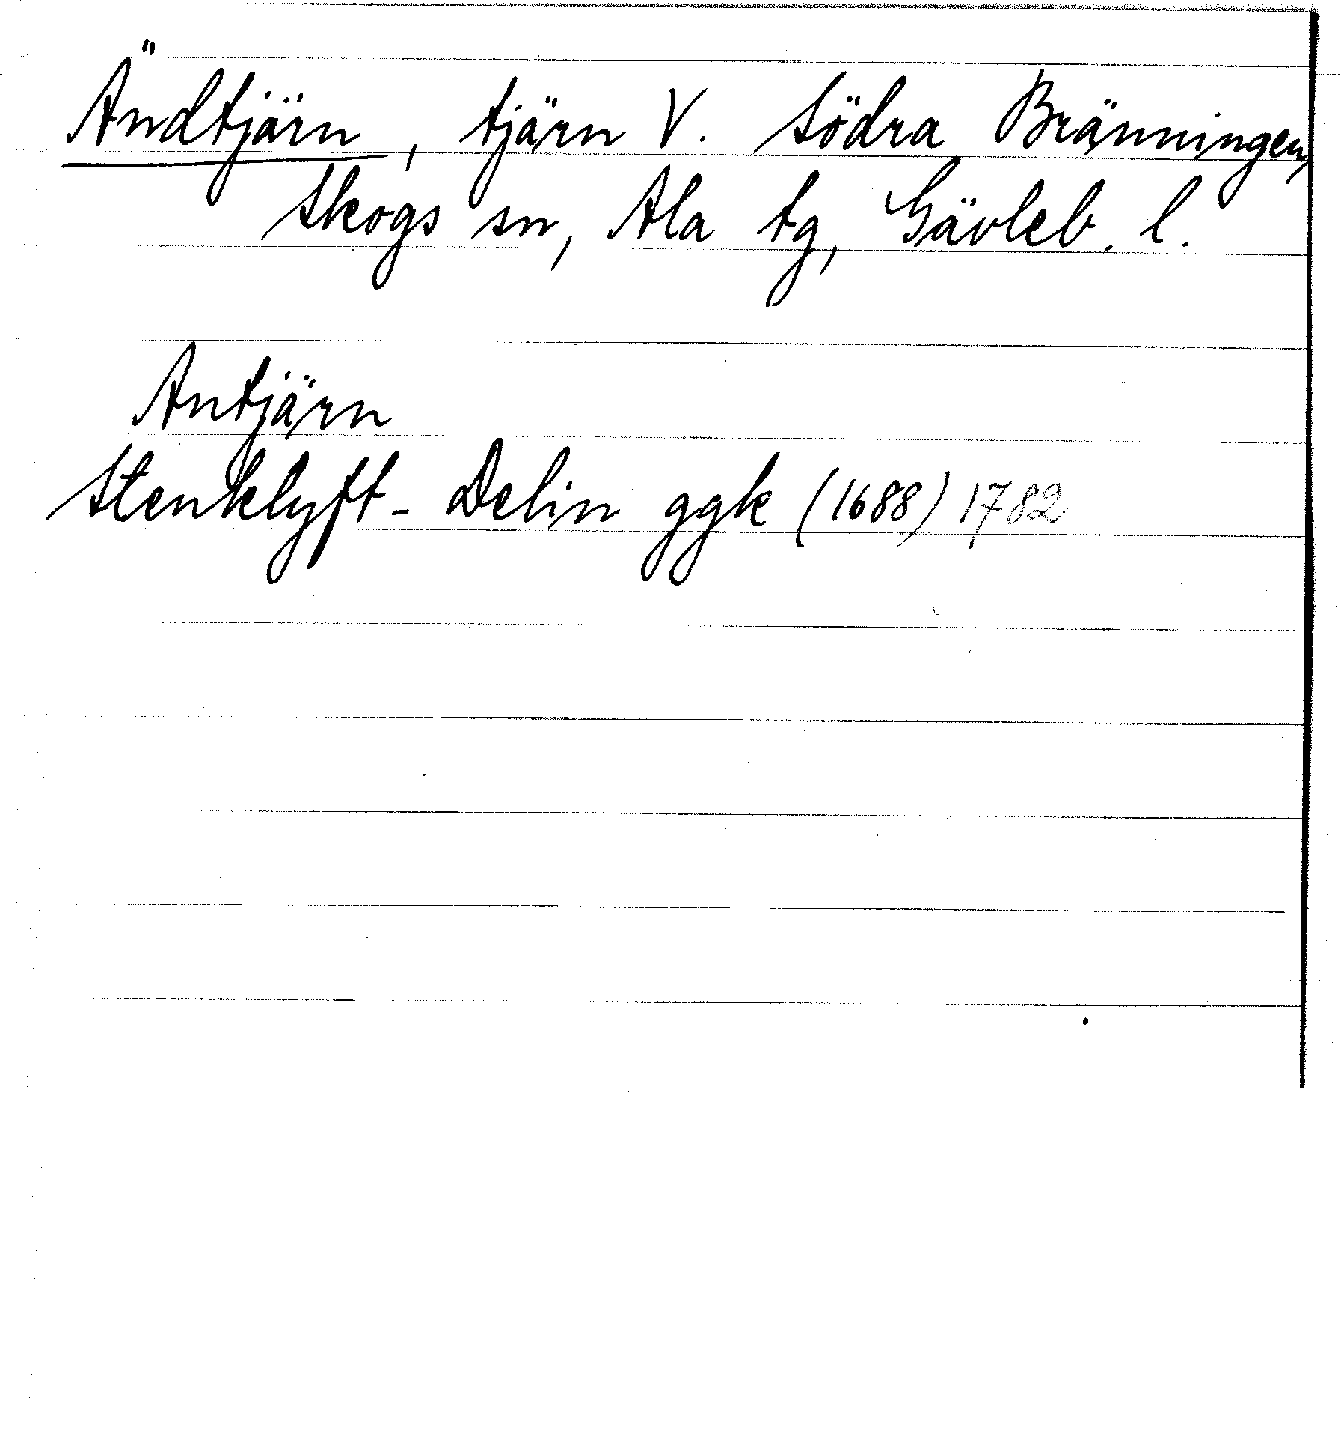 Ändtjärn, tjärn V. Södra Bränningen,
Skogs sn, Ala tg, Gävleb. l.
Antjärn
Stenklyft - Delin ggk (1688) 1782